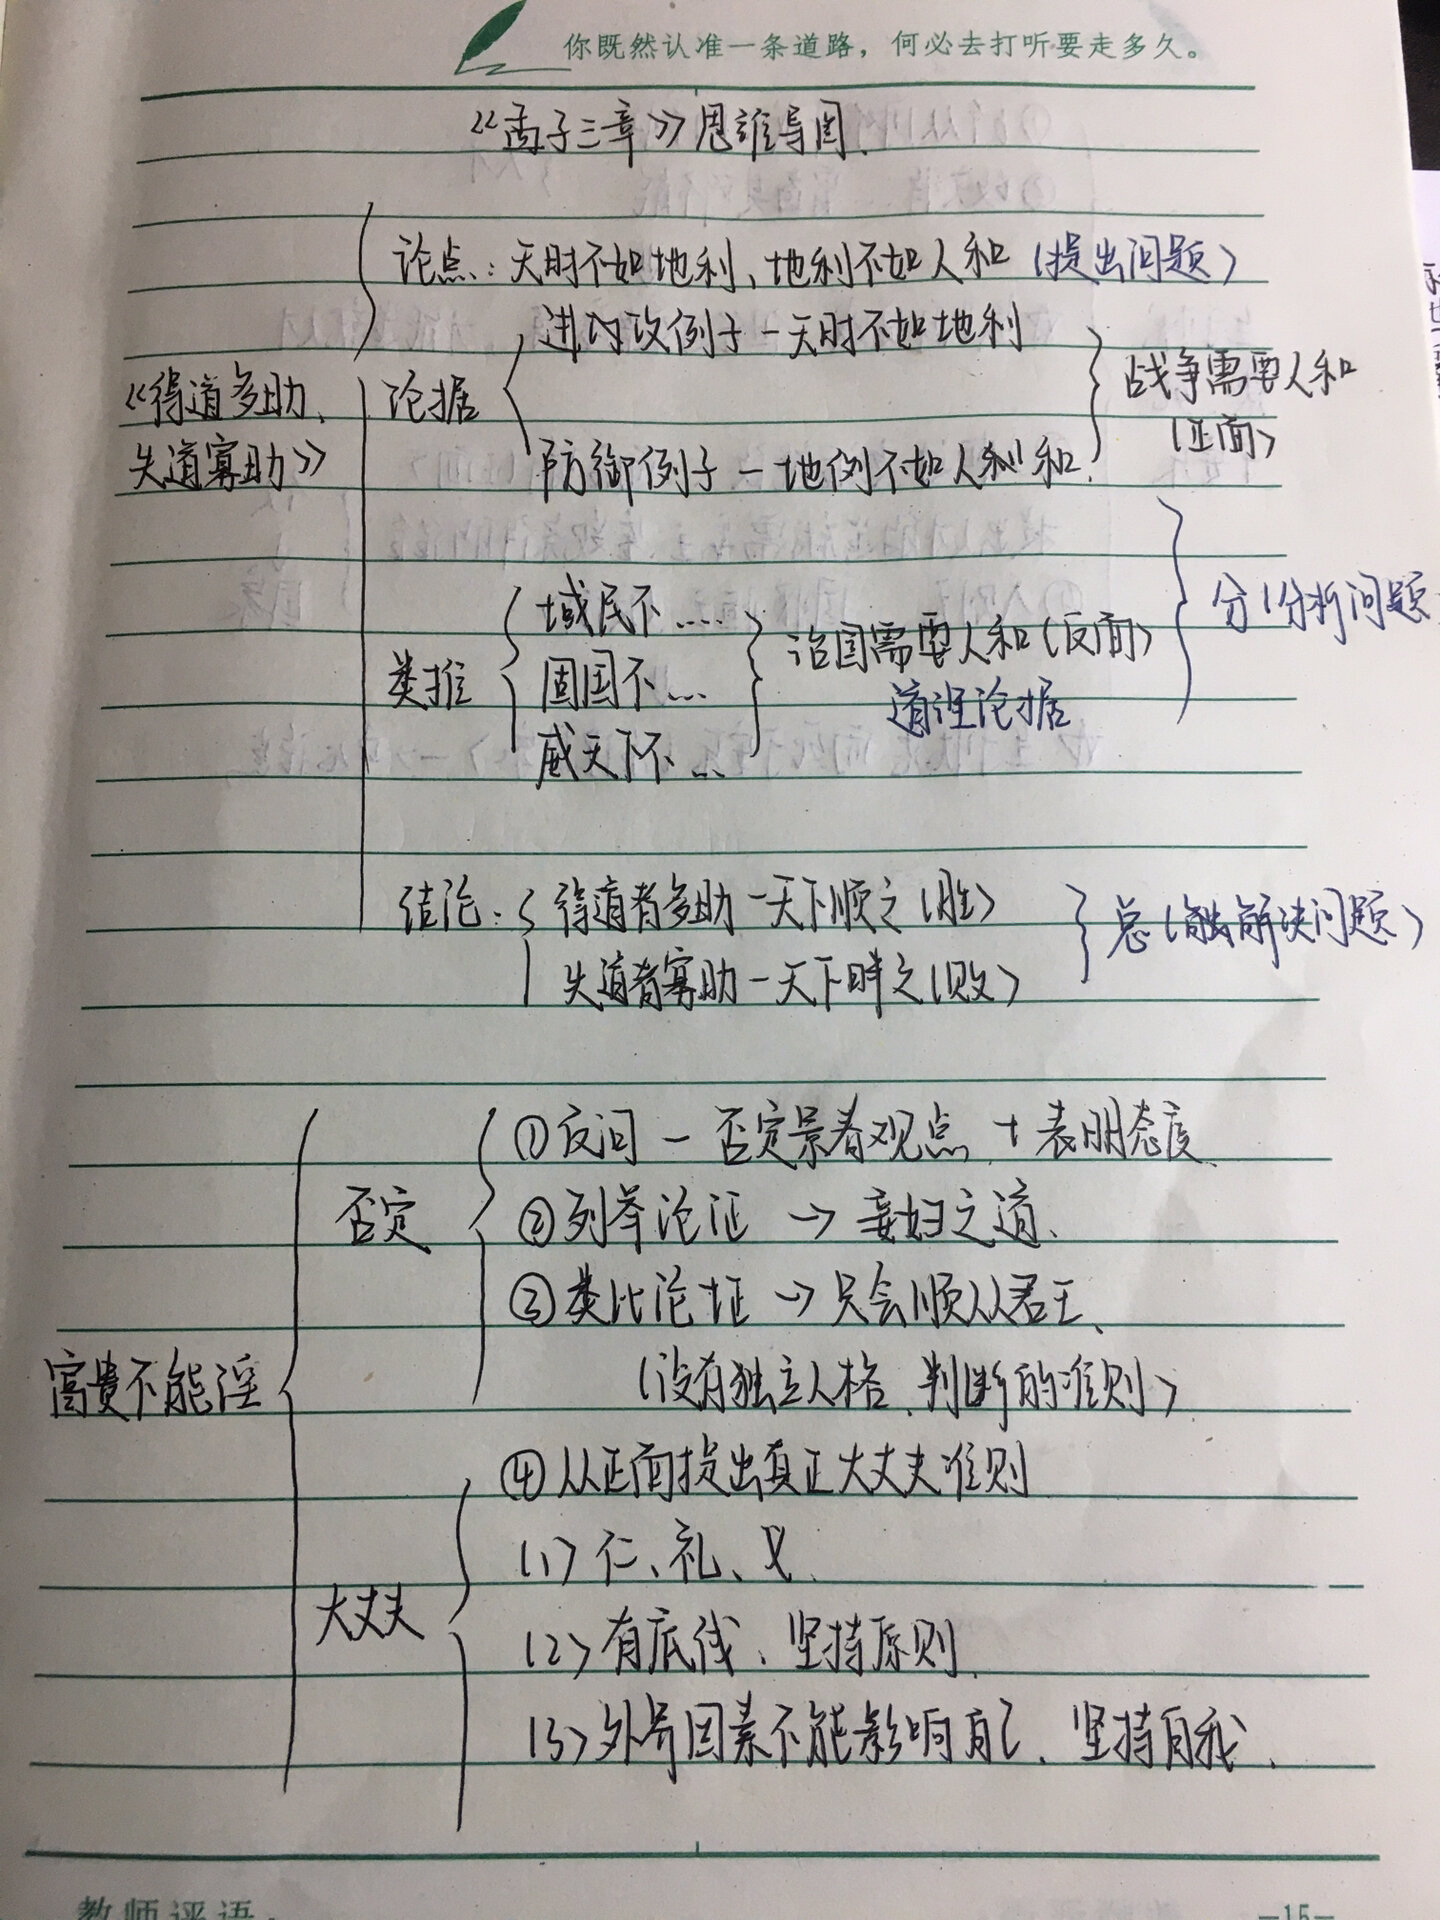 你既然认准一条道路，何必去打听要走多久。
《孟子三章》思维导图.
论点：天时不如地利、地利不如人和（提出问题）
进攻例子－天时不如地利
《得道多助、
论据
战争需要人和
（正面）
失道寡助》
防御例子－地例不如人和.
域民不....
分（分析问题
治国需要人和（反面）
类推
固国不...
道理论据
威天下不...
结论：
得道者多助－天下顺之（胜）
总（解决问题）
失道者寡助－天下畔之（败）
①反问－否定景春观点＋表明态度.
否定
②列举论证→妾妇之道.
③类比论证→只会顺从君王、
富贵不能淫
（没有独立人格、判断的准则）
④从正面提出真正大丈夫准则
(1)仁、礼、义.
大丈夫
(2)有底线、坚持原则.
(3)外界因素不能影响自己、坚持自我.
教师评语：
—15—